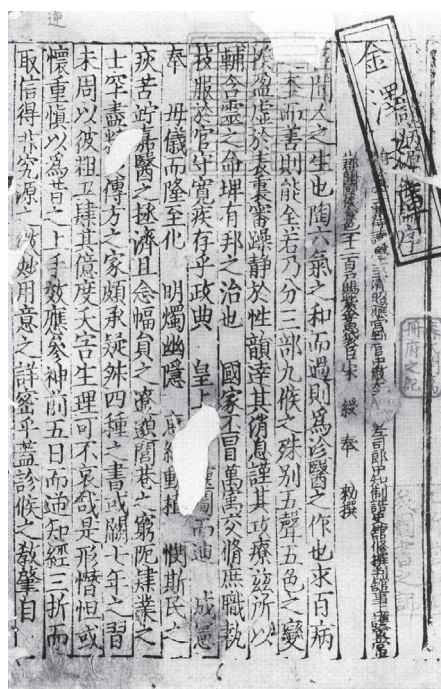 金澤文庫
玉清昭應宮判官中散大夫 左司郎中知制誥史館修撰判館事上護軍常
郡開國侯食邑一千二百戶賜紫金魚袋臣宋 綬 奉 勑撰
聞人之生也陶六氣之和而過則爲沴醫之作也求百病
本而善則能全若乃分三部九候之殊別五聲五色之變
揆盈虛於表裏審躁靜於性韻達其消息謹其攻療茲所以
輔含靈之命埤有邦之治也 國家丕冒萬寓交脩庶職執
技服於官守寬疾存乎政典 皇上 圖而迪 成憲
奉 母儀而隆至化 明燭幽隱 惠綏動植 憫斯民之
疾苦竚嘉醫之拯濟且念幅員之遼邈閭巷之窮阨肆業之
士罕盡精 傳方之家頗承疑舛四種之書或闕七年之習
未周以彼粗工肆其億度夭害生理可不哀哉是形憯怛或
懷重愼以爲昔之上手效應參神前五日而逆知經三折而
取信得非究源之微妙用意之詳密乎蓋診候之教肇自